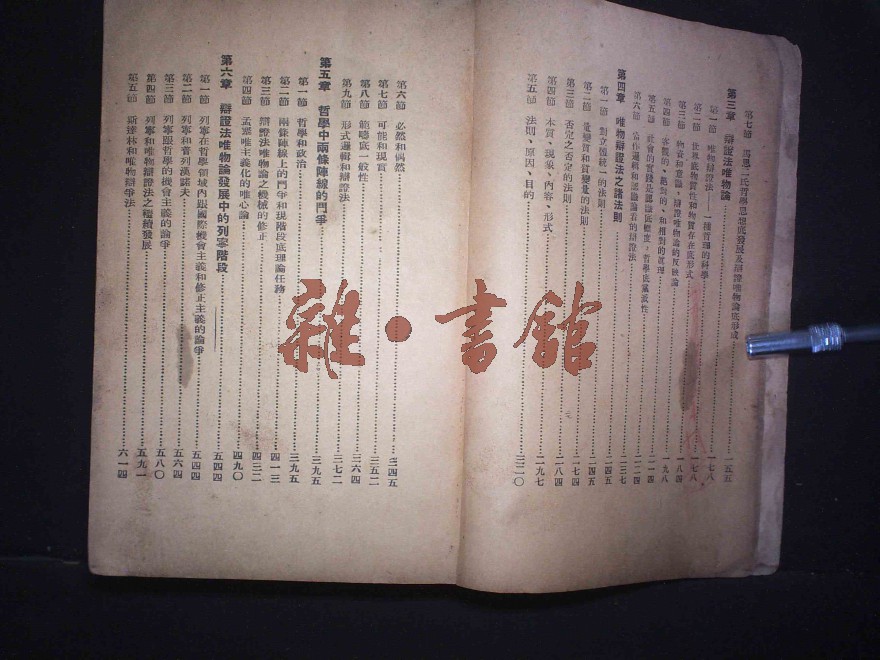 第七節 馬恩二氏哲學思想底發展及辯證唯物論底形成……一五五
第三章 辯證法唯物論……一七八
第一節 唯物辯證法——一種哲理的科學……一七八
第二節 世界底物質性和物質存在底形式……一七八
第三節 物質和意識、辯證唯物論的反映論……一八四
第四節 客觀的、絕對的、和相對的眞理……一九八
第五節 社會的實踐是認識底標度，哲學底黨派性……二一四
第六節 當作邏輯和認識論看的辯證法……二二四
第四章 唯物辯證法之諸法則……二三七
第一節 對立體統一的法則……二四五
第二節 量變質和質變量的法則……二四五
第三節 否定之否定的法則……二七四
第四節 本質、現象、內容、形式……二八四
第五節 法則、原因、目的……二九七
三二〇
第六節 必然和偶然……三四五
第七節 可能和現實……三五二
第八節 範疇底一般性……三六四
第九節 形式邏輯和辯證法……三七二
第五章 哲學中兩條陣線的鬥爭……三九五
第一節 哲學和政治……三九五
第二節 兩條陣線上的鬥爭和現階段底理論任務……四一三
第三節 辯證法唯物論之機械的修正……四三二
第四節 孟塞唯主義化的唯心論……四九〇
第六章 辯證法唯物論發展中的列寧階段……五四四
第一節 列寧在哲學領域內跟國際機會主義和修正主義的論爭……五四四
第二節 列寧和普列漢諾夫……五六四
第三節 列寧跟哲學的機會主義的論爭……五八〇
第四節 列寧和唯物辯證法之繼續發展……五九一
第五節 斯達林和唯物辯爭法……六一四
雜·書館